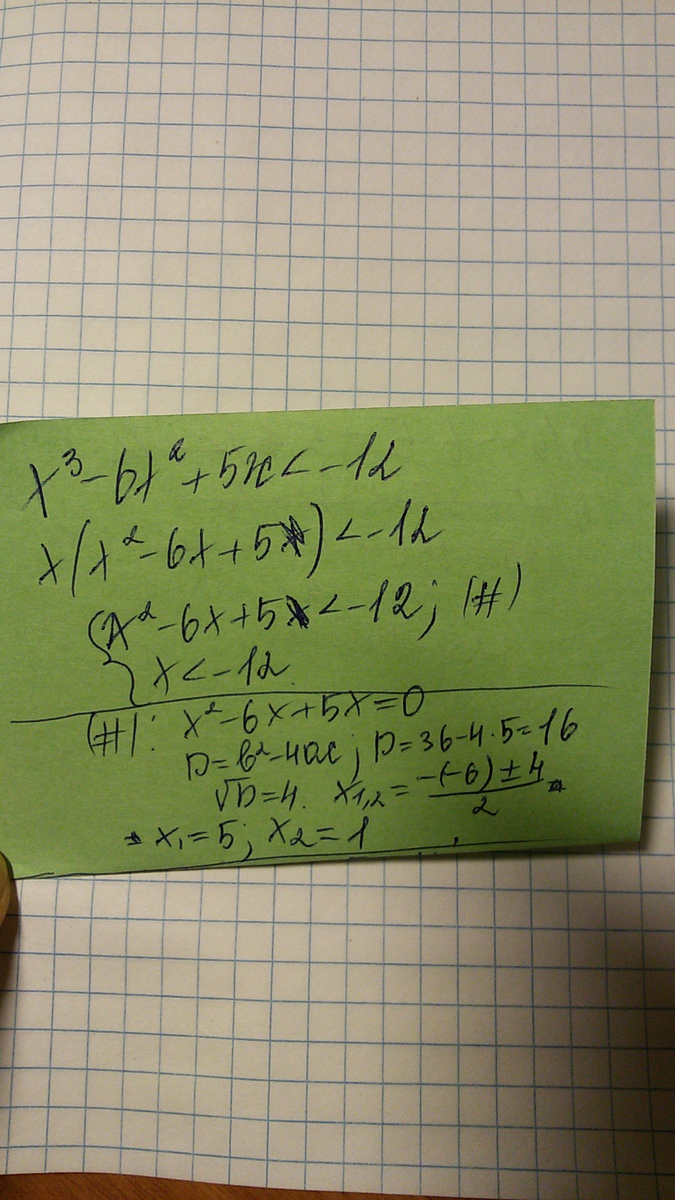 x³-6x²+5x<-12
x(x²-6x+5)<-12
{x²-6x+5<-12; (#)
x<-12.
(#): x²-6x+5x=0
D=b²-4ac; D=36-4·5=16
√D=4. x₁,₂=(-(-6)±4)/2
x₁=5; x₂=1